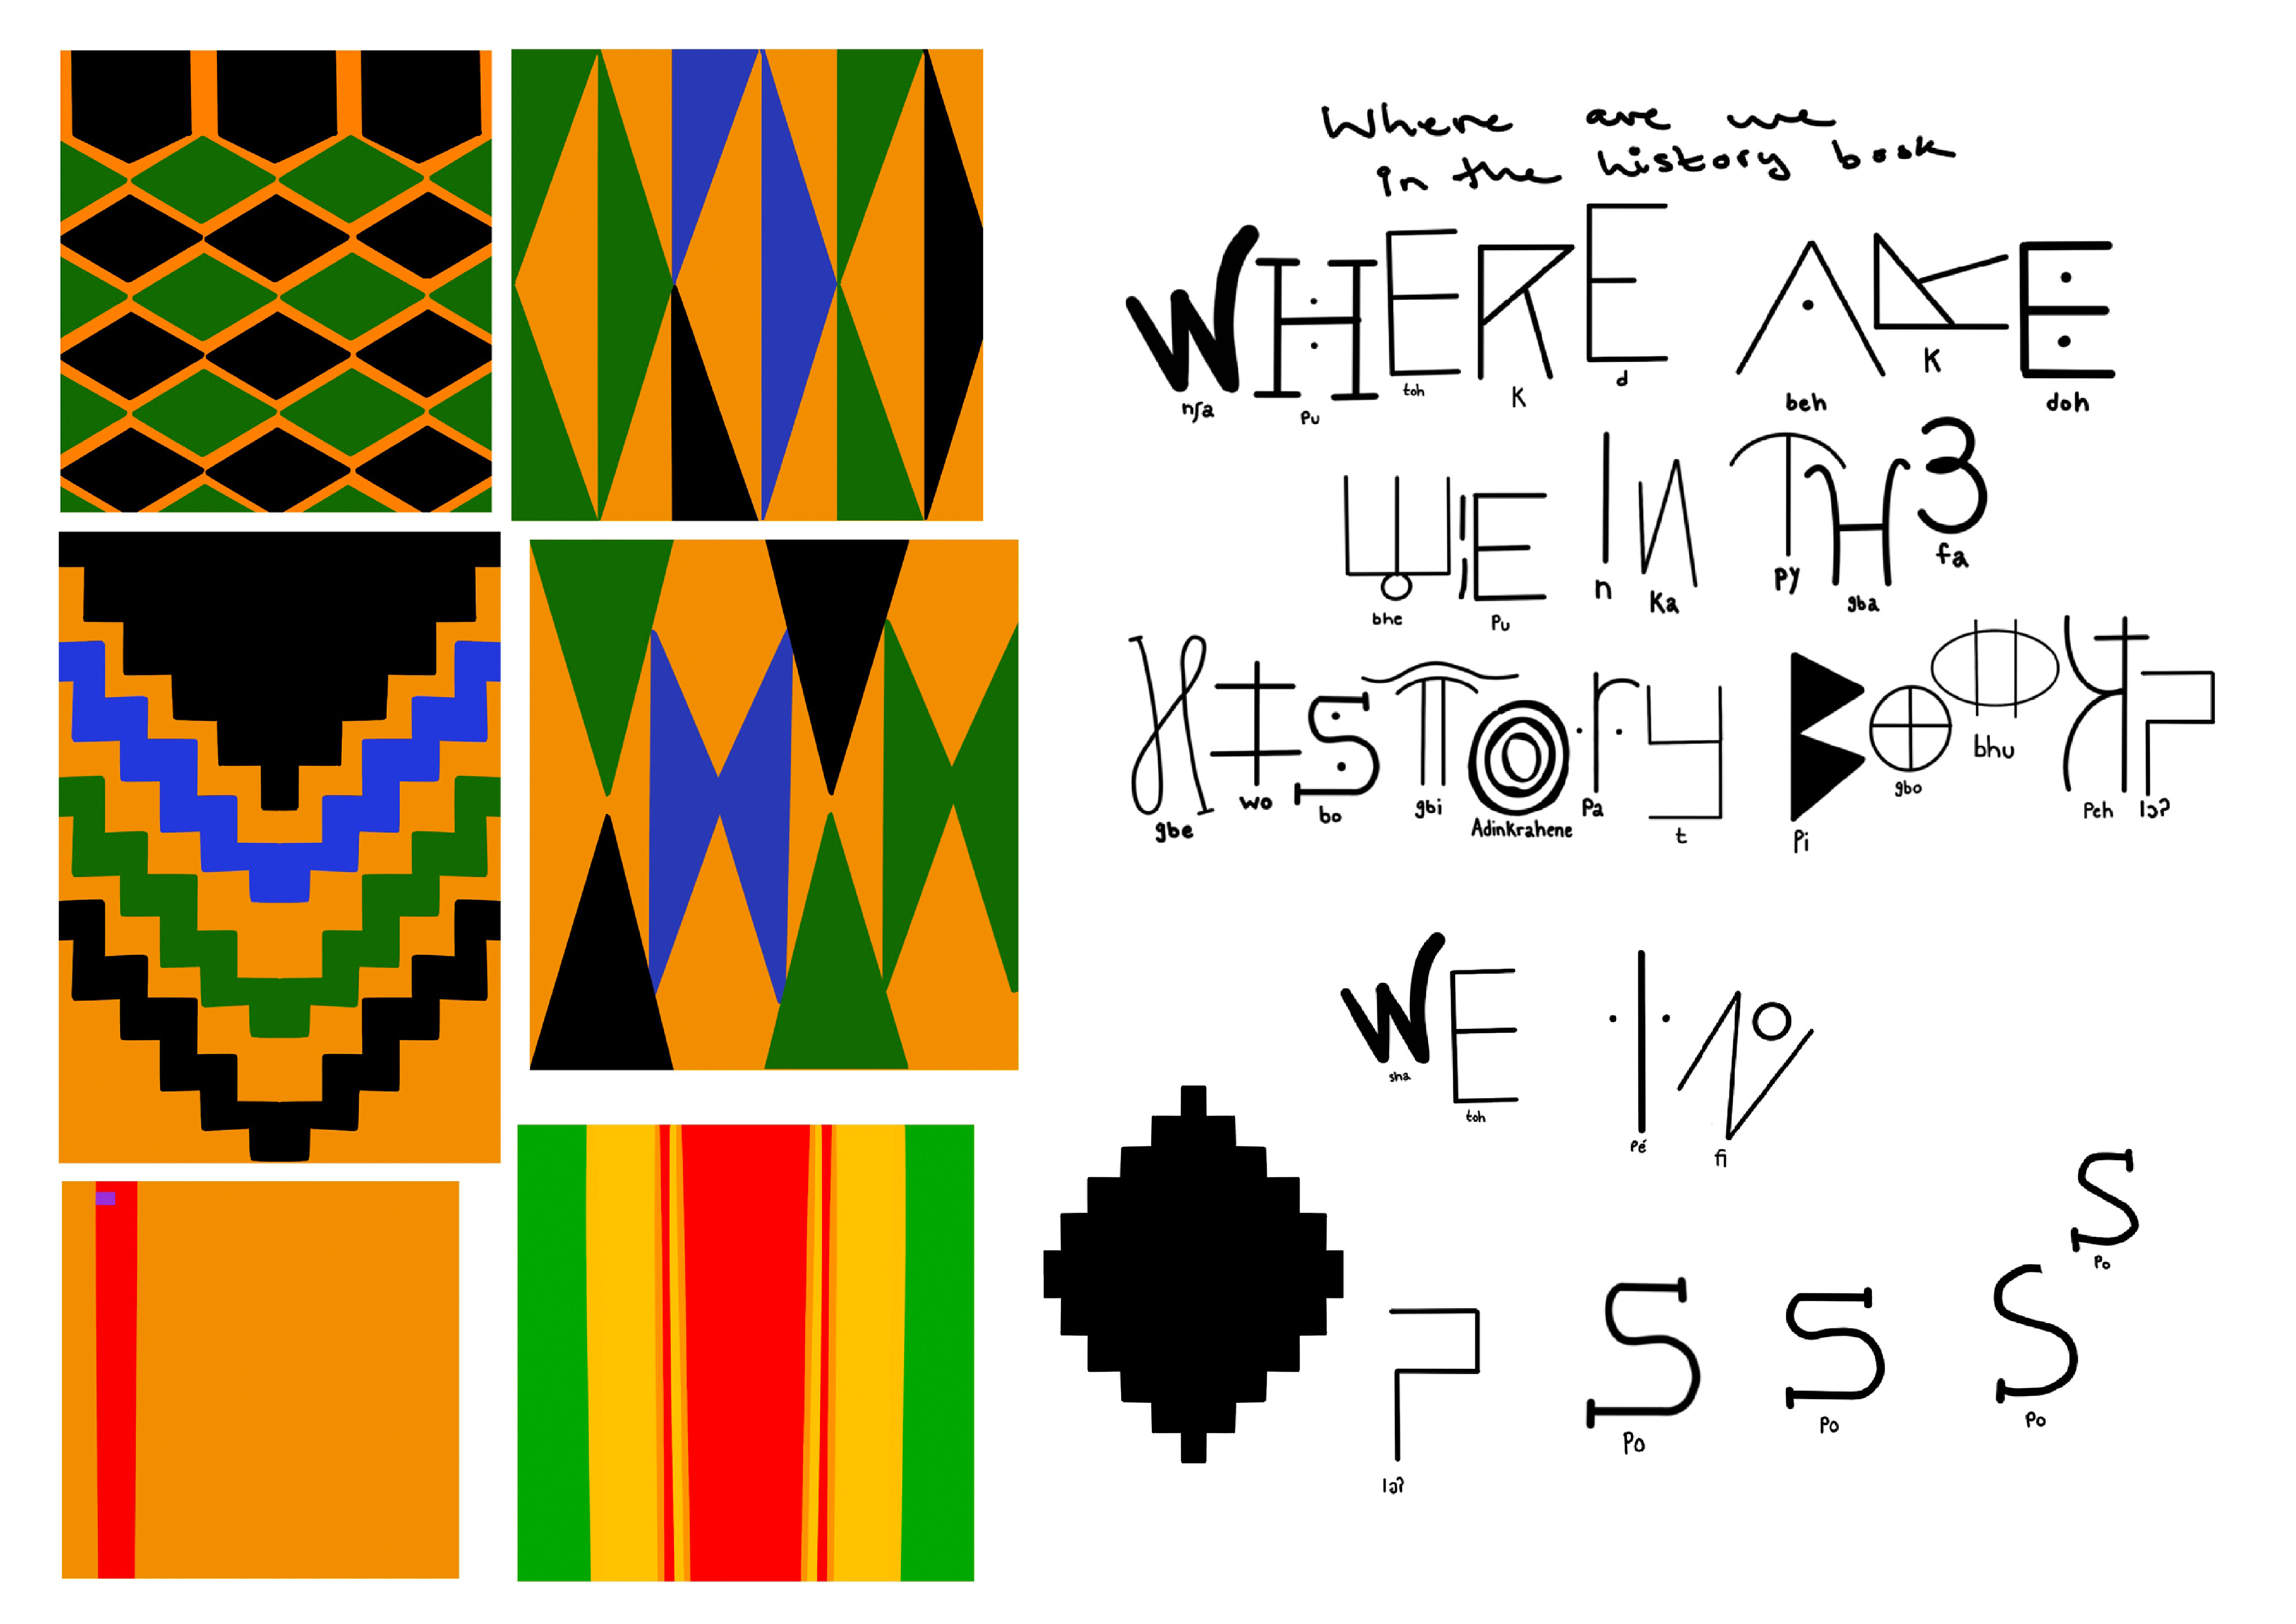 Where are we
in the history book
WHERE ARE
nʃa pu toh K d beh K doh
WE IN THƐ
bhe Pu n Ka py gba fa
HISTORY BOOK
gbe wo bo gbi Adinkrahene Pa t Pi gbo bhu Peh lɔʔ
WE IN
sha toh Pé fi
S
Po
S S S
lɔʔ Po Po Po